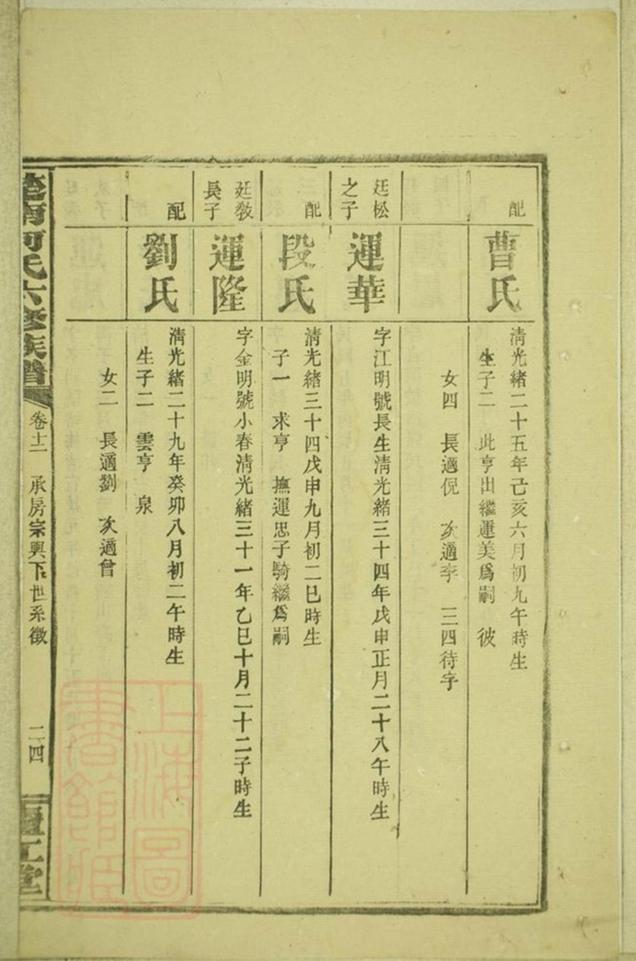 配
曹氏
清光緒二十五年己亥六月初九午時生
生子二 此亨出繼運美爲嗣 彼
女四 長適倪 次適李 三四待字
廷松
之子
運華
字江明號長生清光緒三十四年戊申正月二十八午時生
配
段氏
清光緒三十四戊申九月初二巳時生
子一 求亨 撫運忠子騎繼爲嗣
廷教
長子
運隆
字金明號小春清光緒三十一年乙巳十月二十二子時生
配
劉氏
清光緒二十九年癸卯八月初二午時生
生子二 雲亨 泉
女二 長適劉 次適曾
南何氏六修族譜
卷十二 承房宗興下世系徵
二四
堂
上海圖書館藏